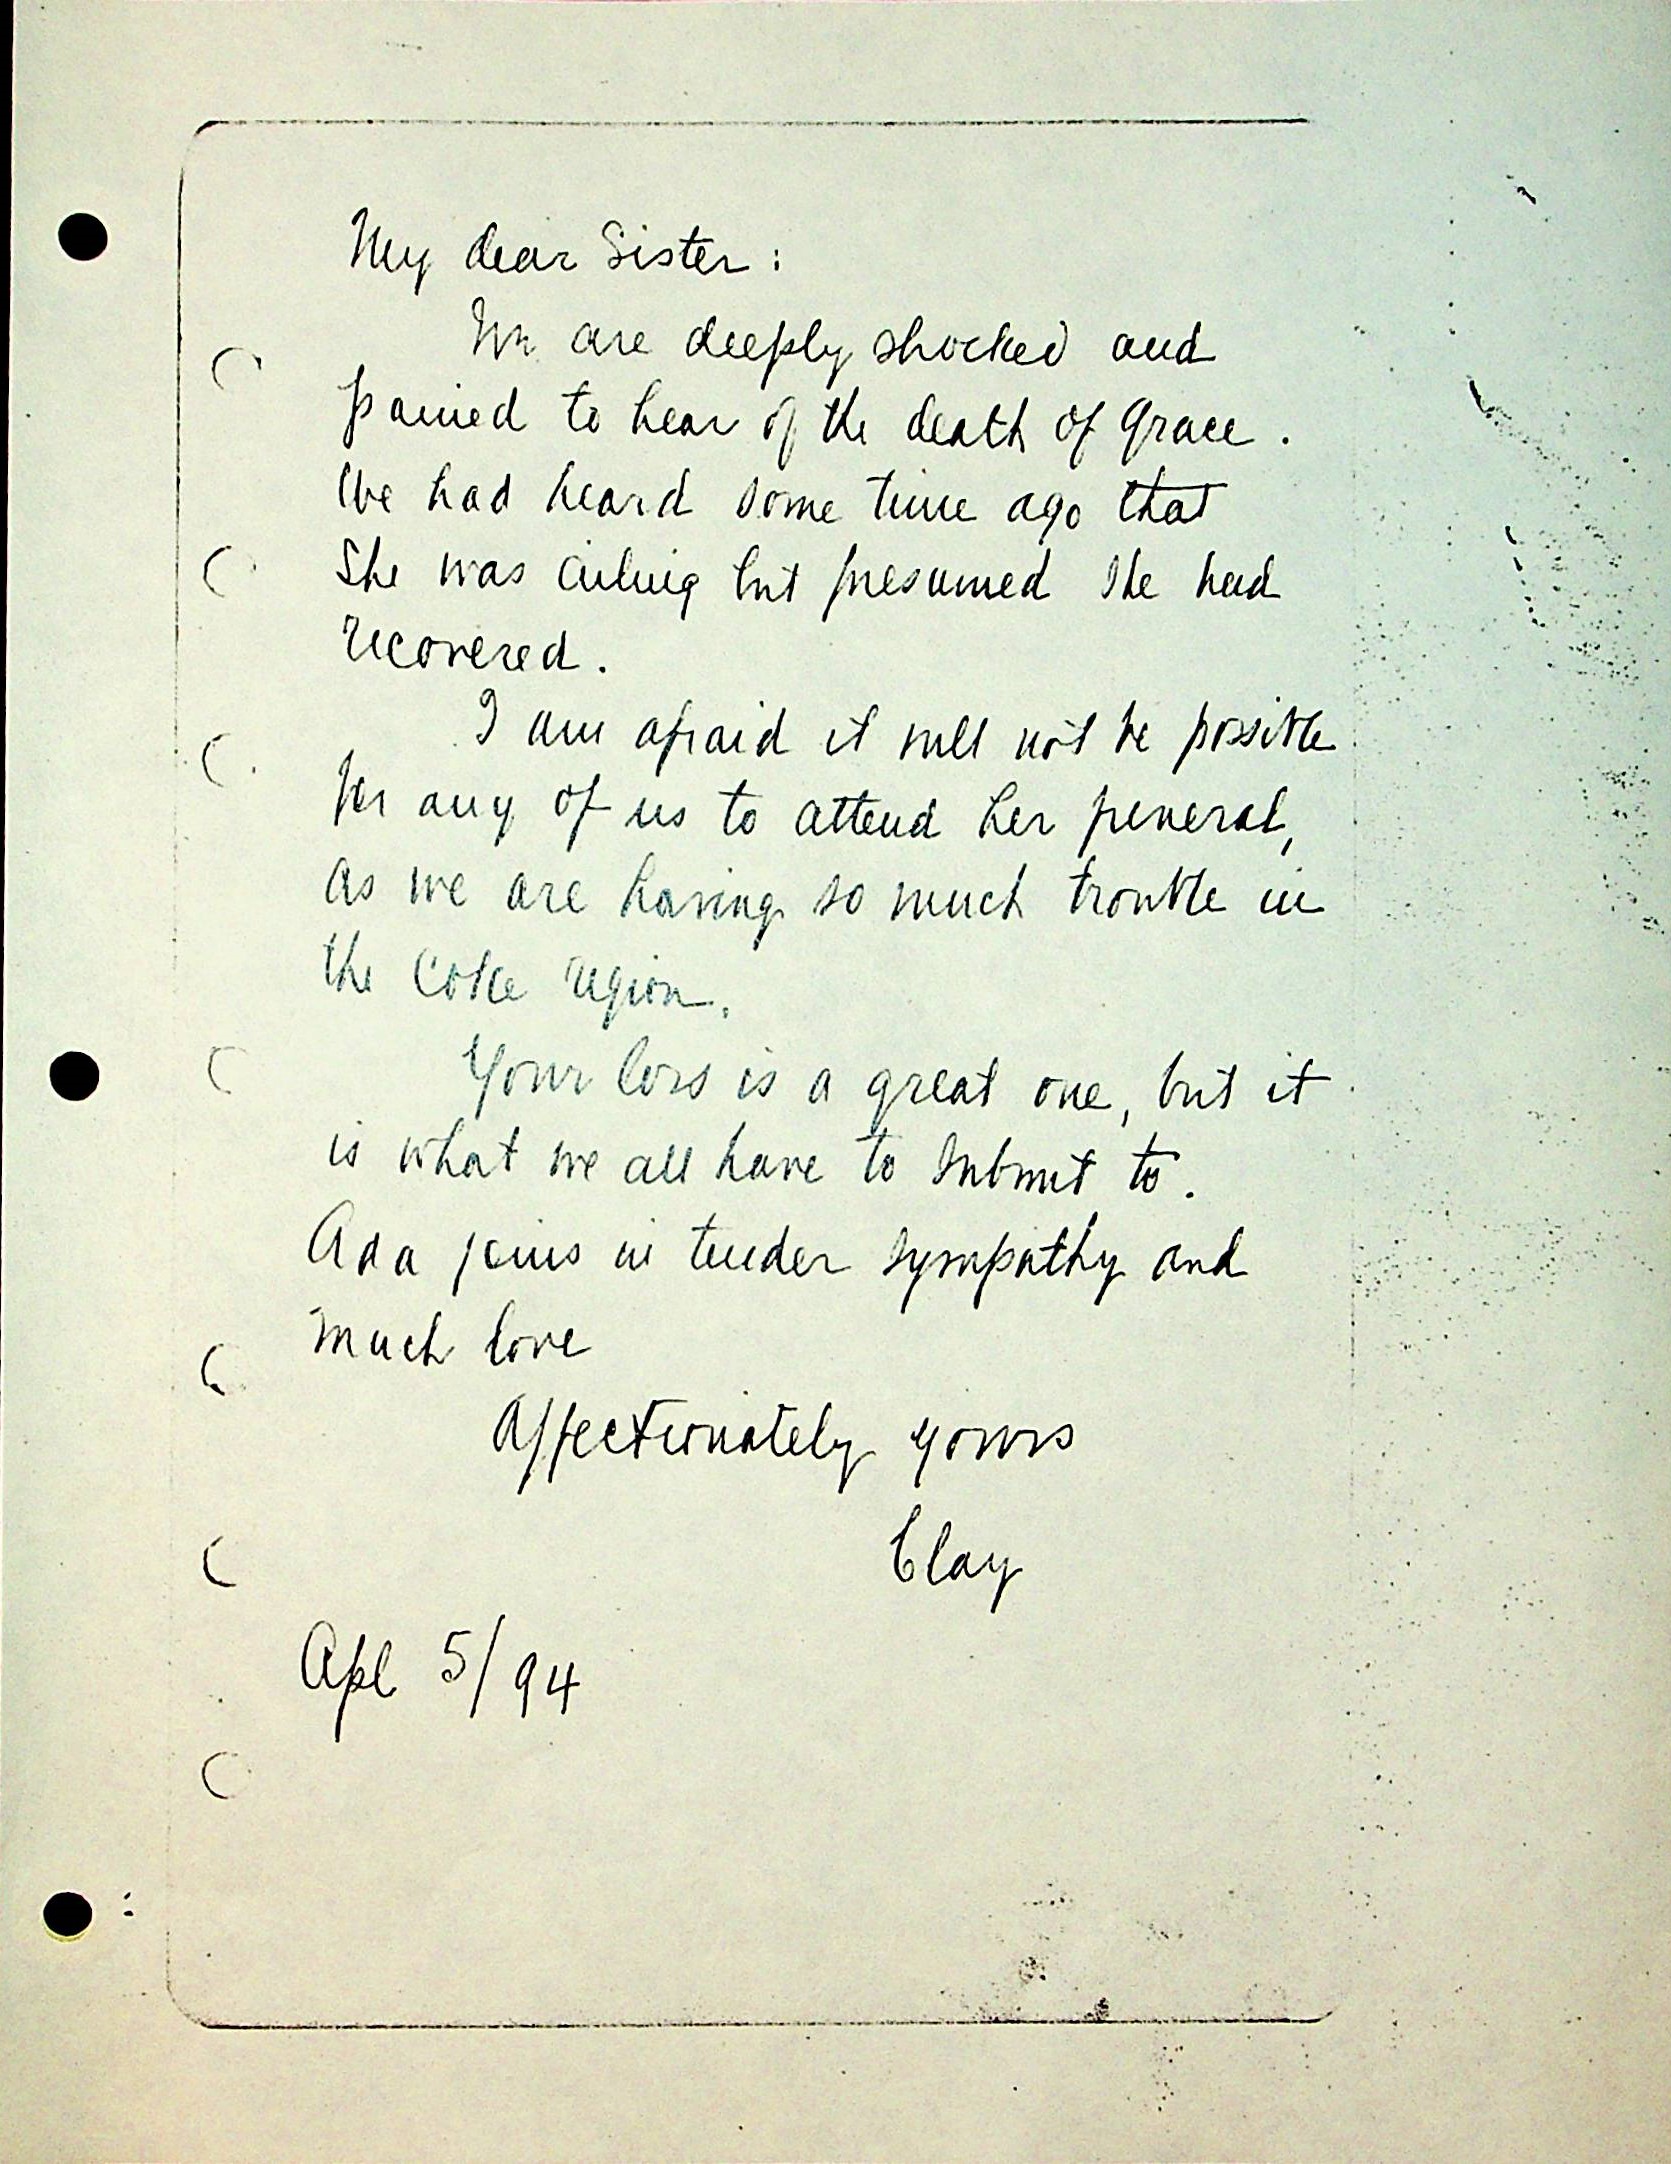 My dear Sister:
We are deeply shocked and
pained to hear of the death of Grace.
We had heard some time ago that
She was ailing but presumed she had
recovered.
I am afraid it will not be possible
for any of us to attend her funeral,
as we are having so much trouble in
the Coke region.
Your loss is a great one, but it
is what we all have to submit to.
Ada joins in tender sympathy and
much love
Affectionately yours
Clay
Apl 5/94